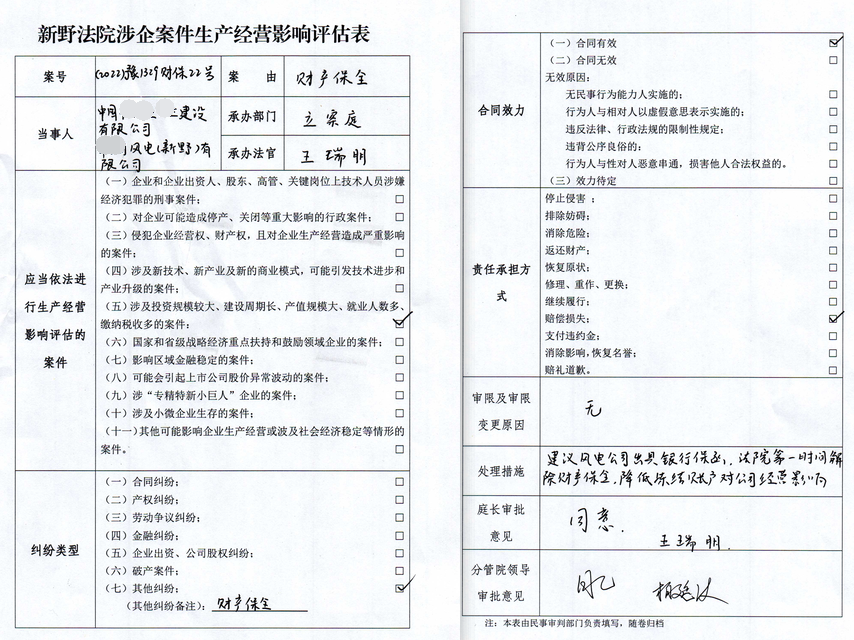 新野法院涉企案件生产经营影响评估表
案号
(2022)豫1329财保22号
案 由
财产保全
当事人
中国 建设
有限公司
风电(新野)有
限公司
承办部门
立案庭
承办法官
王瑞明
应当依法进
行生产经营
影响评估的
案件
(一)企业和企业出资人、股东、高管、关键岗位上技术人员涉嫌
经济犯罪的刑事案件; □
(二)对企业可能造成停产、关闭等重大影响的行政案件; □
(三)侵犯企业经营权、财产权,且对企业生产经营造成严重影响
的案件; □
(四)涉及新技术、新产业及新的商业模式,可能引发技术进步和
产业升级的案件; □
(五)涉及投资规模较大、建设周期长、产值规模大、就业人数多、
缴纳税收多的案件: ☑
(六)国家和省级战略经济重点扶持和鼓励领域企业的案件; □
(七)影响区域金融稳定的案件; □
(八)可能会引起上市公司股价异常波动的案件; □
(九)涉“专精特新小巨人”企业的案件; □
(十)涉及小微企业生存的案件; □
(十一)其他可能影响企业生产经营或波及社会经济稳定等情形的
案件。 □
纠纷类型
(一)合同纠纷; □
(二)产权纠纷; □
(三)劳动争议纠纷; □
(四)金融纠纷; □
(五)企业出资、公司股权纠纷; □
(六)破产案件; □
(七)其他纠纷; ☑
(其他纠纷备注): 财产保全
合同效力
(一)合同有效 ☑
(二)合同无效 □
无效原因: □
无民事行为能力人实施的; □
行为人与相对人以虚假意思表示实施的; □
违反法律、行政法规的限制性规定; □
违背公序良俗的; □
行为人与性对人恶意串通,损害他人合法权益的。 □
(三)效力待定 □
责任承担方
式
停止侵害 ; □
排除妨碍; □
消除危险; □
返还财产; □
恢复原状; □
修理、重作、更换; □
继续履行; □
赔偿损失; ☑
支付违约金; □
消除影响,恢复名誉; □
赔礼道歉。 □
审限及审限
变更原因
无
处理措施
建议风电公司出具银行保函,法院第一时间解
除财产保全,降低冻结账户对公司经营影响
庭长审批
意见
同意.
王瑞明.
分管院领导
审批意见
注:本表由民事审判部门负责填写,随卷归档